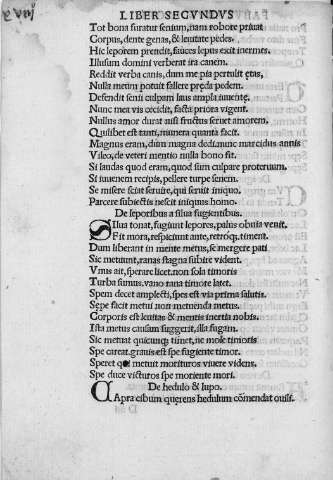 LIBER SECVNDVS
Tot bona furatur senium, nam robore priuat
Corpus, dente genas, & leuitate pedes.
Hic leporem prendit, fauces lepus exit inermes.
Illusum domini verberat ira canem.
Reddit verba canis, dum me pia pertulit ętas,
Nulla meum potuit fallere pręda pedem.
Defendit senii culpam laus ampla iuuentę.
Nunc mea vis cecidit, facta priora vigent.
Nullus amor durat nisi fructus seruet amorem.
Quilibet est tanti, munera quanta facit.
Magnus eram, dum magna dedi, nunc marcidus annis
Vileo, de veteri mentio nulla bono fit.
Si laudas quod eram, quod sum culpare proteruum.
Si iuuenem recipis, pellere turpe senem.
Se misere scit seruire, qui seruit iniquo.
Parcere subiectis nescit iniquus homo.
De leporibus a silua fugientibus.
SIlua tonat, fugiunt lepores, palus obuia venit.
Fit mora, respiciunt ante, retroq; timent.
Dum liberant in mente metus, se mergere pati
Sic metuunt, ranas stagna subire vident.
Vnus ait, sperare licet. non sola timoris
Turba sumus. vano rana timore latet.
Spem decet amplecti, spes est via prima salutis.
Sępe facit metui non metuenda metus.
Corporis est leuitas & mentis inertia nobis.
Ista metus causam suggerit, illa fugam.
Sic metuat quicunq; timet, ne mole timoris
Spe careat. grauis est spe fugiente timor.
Speret qui metuit morituros viuere videns.
Spe duce victuros spe moriente mori.
De hedulo & lupo.
CApra cibum querens hedulum cõmendat ouili.